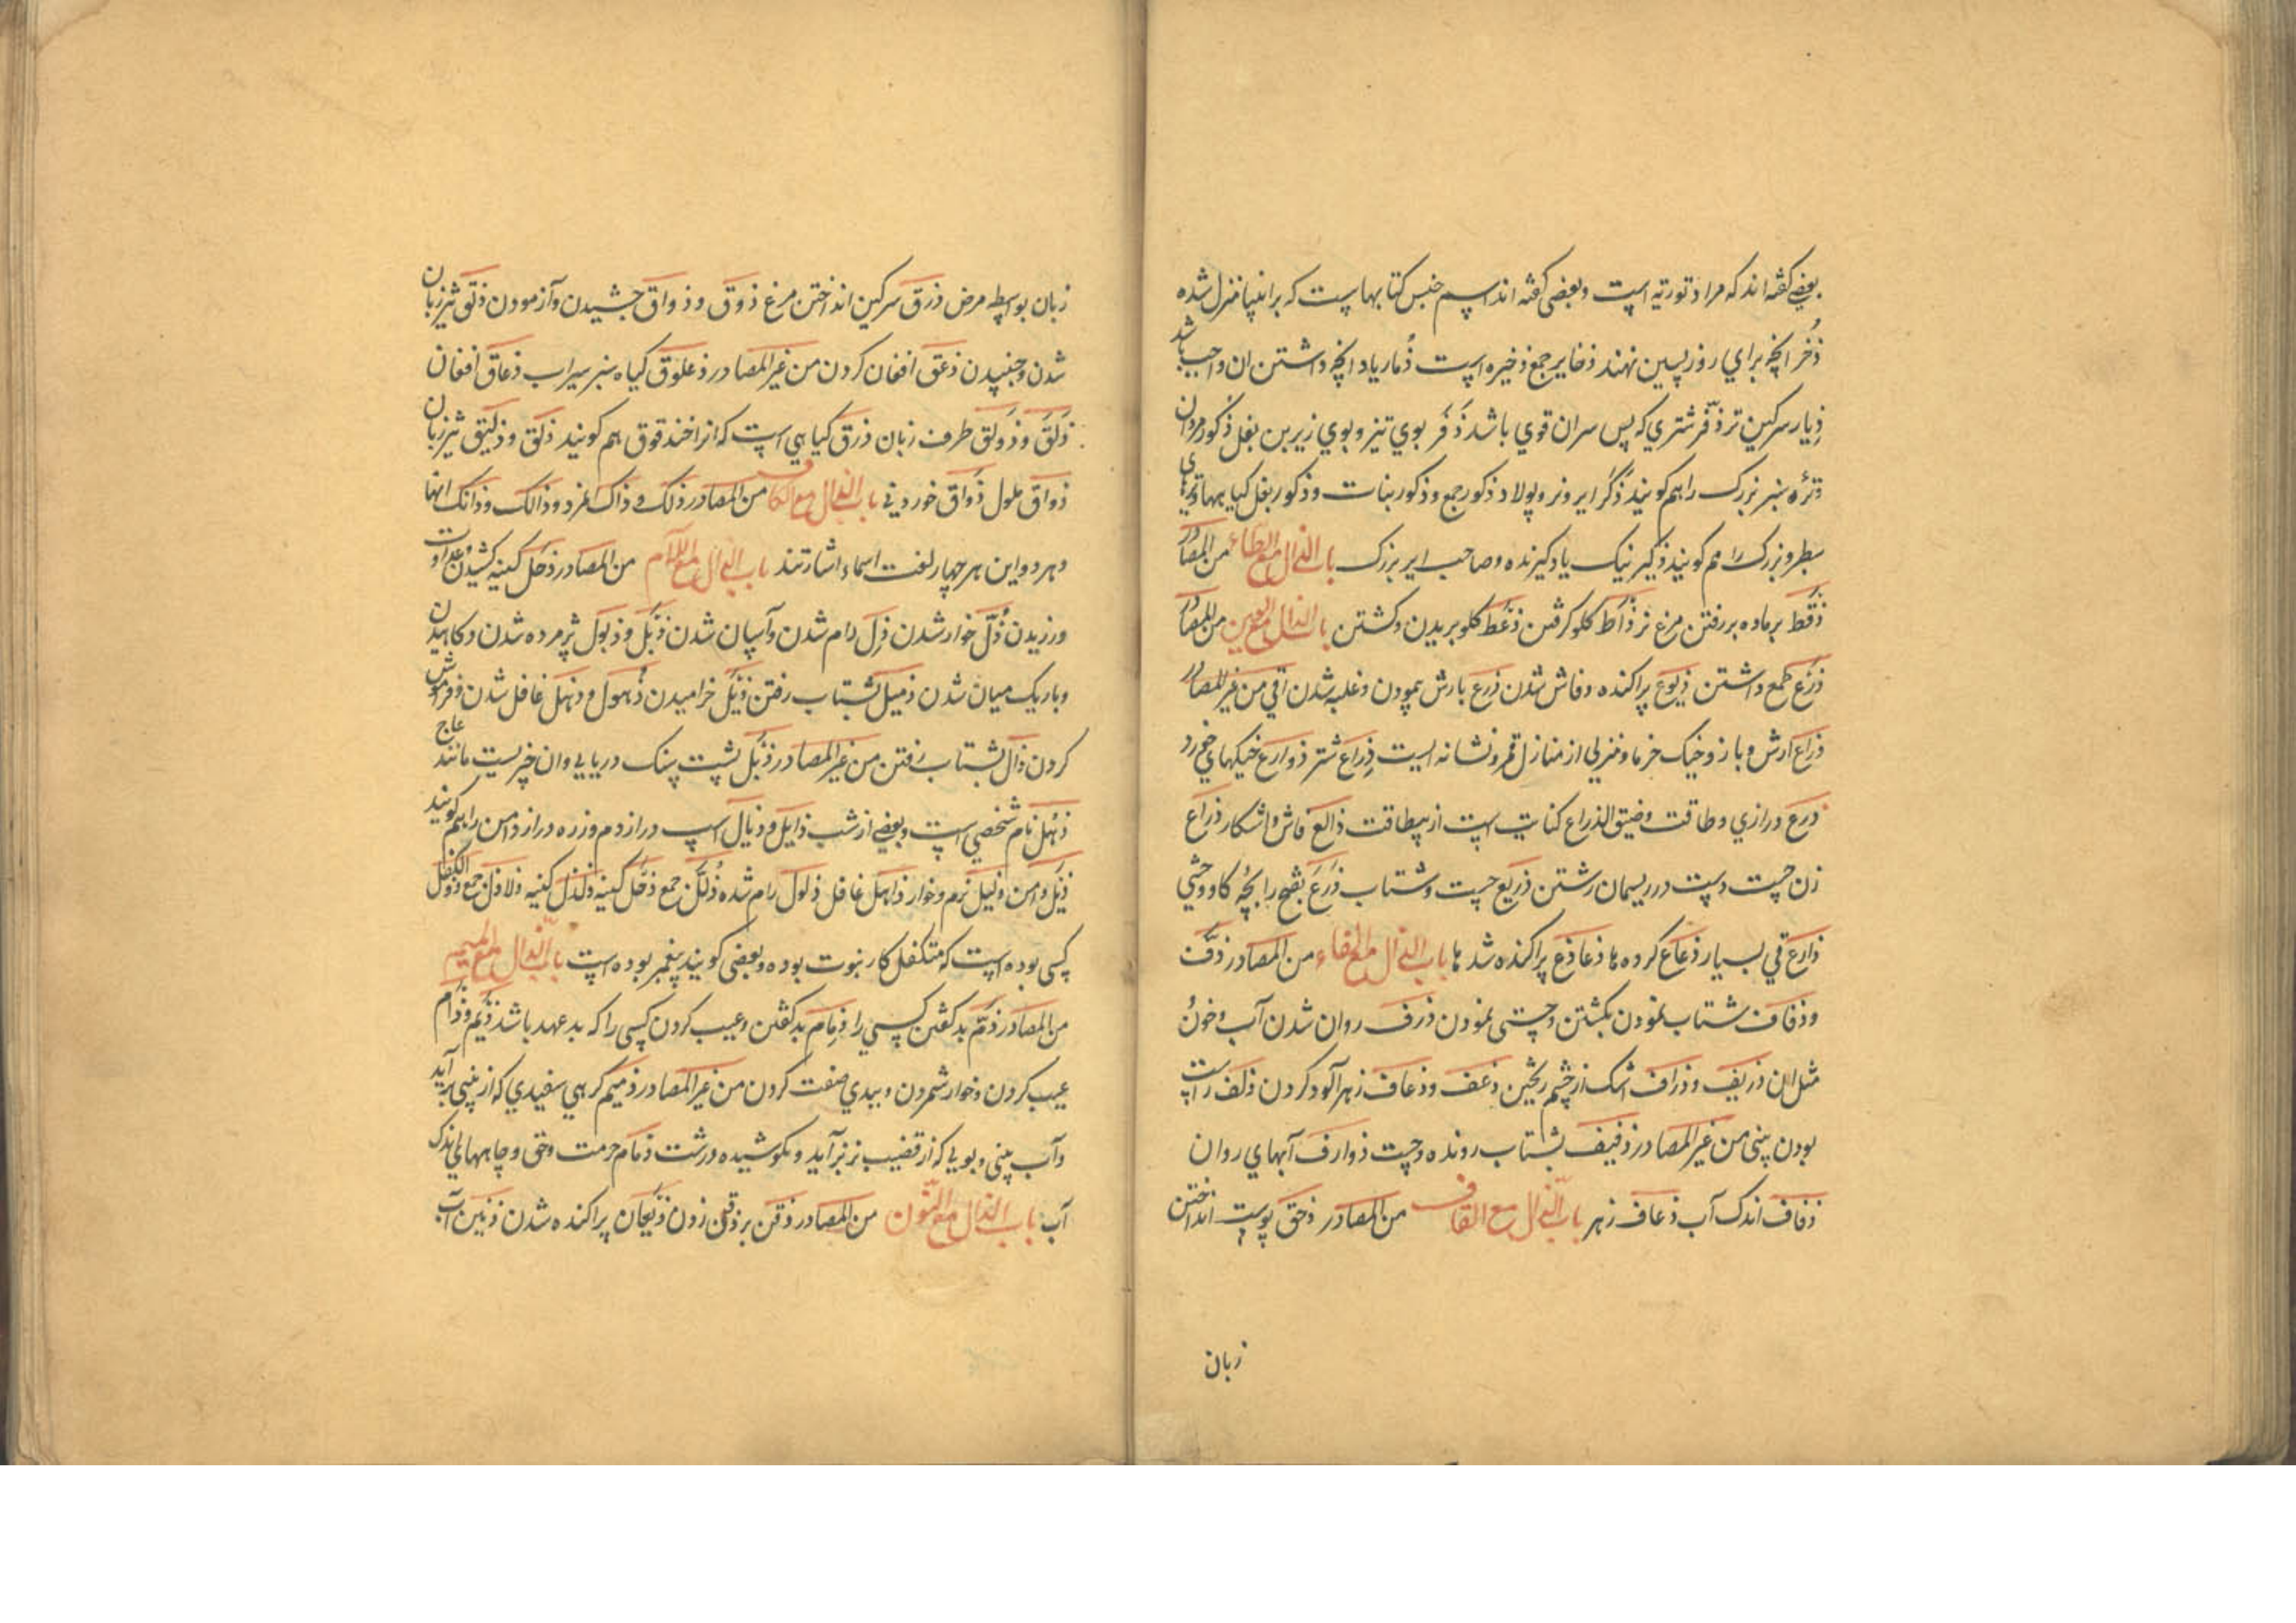 بعضی کفته اند که مراد تورته است وبعضی کفته اند اسم جنس کتابهاست که بر انبیا منزل شده
ذُخر انچه برای روز پسین نهند ذخایر جمع ذخیره است ذُمار یاد انچه داشتن ان واجب باشد
ذِیار سرکین تر ذفر شتری که پس سر ان قوی باشد ذَفَر بوی تیز وبوی زیر بن بغل ذکور مردان
وتره سبز بزرک را هم کویند ذکر ایر ونر وپولاد ذکور جمع وذکور بنات وذکور بغل کیاههاوتره های
سطبر وبزرک را هم کویند ذکیر نیک یاد کیرنده وصاحب ایر بزرک باب الذال مع الطاء من المصادر
ذقط بر ماده بر رفتن مرغ نر ذاط کلو کرفتن ذعط کلو بریدن وکشتن باب الذال مع العین من المصادر
ذرع طمع داشتن ذیوع پراکنده وفاش شدن ذرع بارش پیمودن وغلبه شدن اقی من غیر المصادر
ذراع ارش وبازو وخیک خرما ومنزلی از منازل قمر ونشانه ایست ذِراع شتر ذوارع خیکهای خورد
ذرع درازی وطاقت وضیق الذراع کنایت است از بیطاقت ذالع فاش واشکار ذراع
زن چست دست در ریسمان رشتن ذریع چست وشتاب ذرع بفتح را بچه کاو وحشی
ذارع قی بسیار ذعاع کرده ها ذعاذع پراکنده شد ها باب الذال مع الفاء من المصادر ذف
وذفاف شتاب نمودن بکشتن وچستی نمودن ذرف روان شدن آب وخون
مثل ان ذریف وذراف اشک از چشم ریختن ذعف وذعاف زهر آلود کردن ذلف راست
بودن بینی من غیر المصادر ذفیف بشتاب رونده وچست ذوارف آبهای روان
ذفاف اندک آب ذعاف زهر باب الذال مع القاف من المصادر ذحق پوست انداختن
زبان
زبان بواسطه مرض ذرق سرکین انداختن مرغ ذوق وذواق چشیدن وآزمودن ذلق تیز زبان
شدن وجنبیدن ذعق افغان کردن من غیر المصادر ذعلوق کیاه سبز سیراب ذعاق افغان
ذلق وذولق طرف زبان ذرق کیاهی است که انرا خندقوق هم کویند ذلق وذلیق تیز زبان
ذواق ملول ذواق خوردنی باب الذال مع الکاف من المصادر ذلک وذاک مرد وذالک وذانک انها
وهر دو این هر چهار لغت اسماء اشارتند باب الذال مع اللام من المصادر ذحل کینه کشیدن وعداوت
ورزیدن ذُل خوار شدن ذِل رام شدن وآسان شدن ذبل وذبول پژمرده شدن وکاهیدن
وباریک میان شدن ذمیل بشتاب رفتن ذیل خرامیدن ذهول وذهل غافل شدن وفراموش
کردن ذال بشتاب رفتن من غیر المصادر ذبل پشت سنک دریایی وان چیزیست مانند عاج
ذهل نام شخصی است وبعضی از شب ذایل وذیال اسپ دراز دم وزره دراز دامن را هم کویند
ذیل دامن ذلیل نرم وخوار ذاهل غافل ذلول رام شده ذلل جمع ذحل کینه ذلذل کینه ذلاذل جمع ذو الکفل
کسی بوده است که متکفل کار نبوت بوده وبعضی کویند پیغمبر بوده است باب الذال مع المیم
من المصادر ذم بد کفتن کسی را ذِمام بد کفتن وعیب کردن کسی را که بد عهد باشد ذیم وذام
عیب کردن وخوار شمردن وببدی صفت کردن من غیر المصادر ذمیم کرهی سفیدی که از بینی بر آید
وآب بینی وبویی که از قضیب نر بر آید ونکوشیده وزشت ذمام حرمت وحق وچاههای اندک
آب باب الذال مع النون من المصادر ذقن بر ذقن زدن ذیجان پراکنده شدن ذنین آب